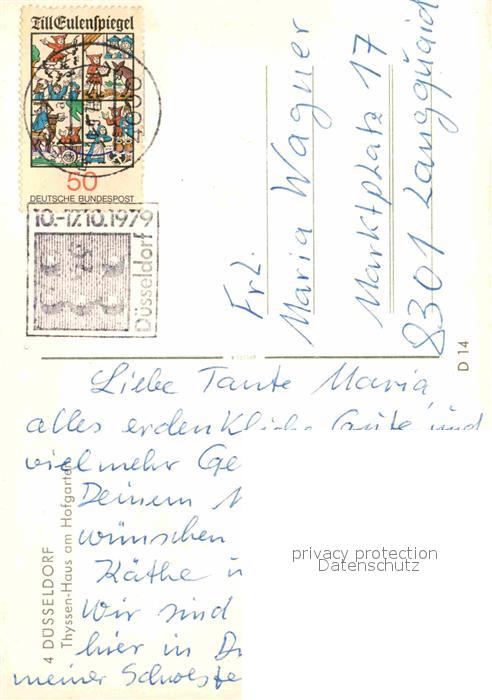 Till Eulenspiegel
50
DEUTSCHE BUNDESPOST
10.-17.10.1979
Düsseldorf
Frl.
Maria Wagner
Marktplatz 17
8301 Langquaid
D 14
Liebe Tante Maria,
alles erdenkliche Gute und
vielmehr Ge
Deinem
wünschen
Käthe
Wir sind
hier in
meiner Schweste
4 DÜSSELDORF
Thyssen-Haus am Hofgarten
privacy protection
Datenschutz